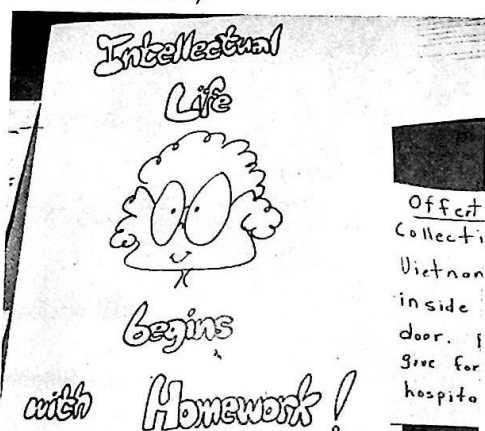 Intellectual
Life
begins
with Homework!
Collecti
inside
door.
give for
hospita